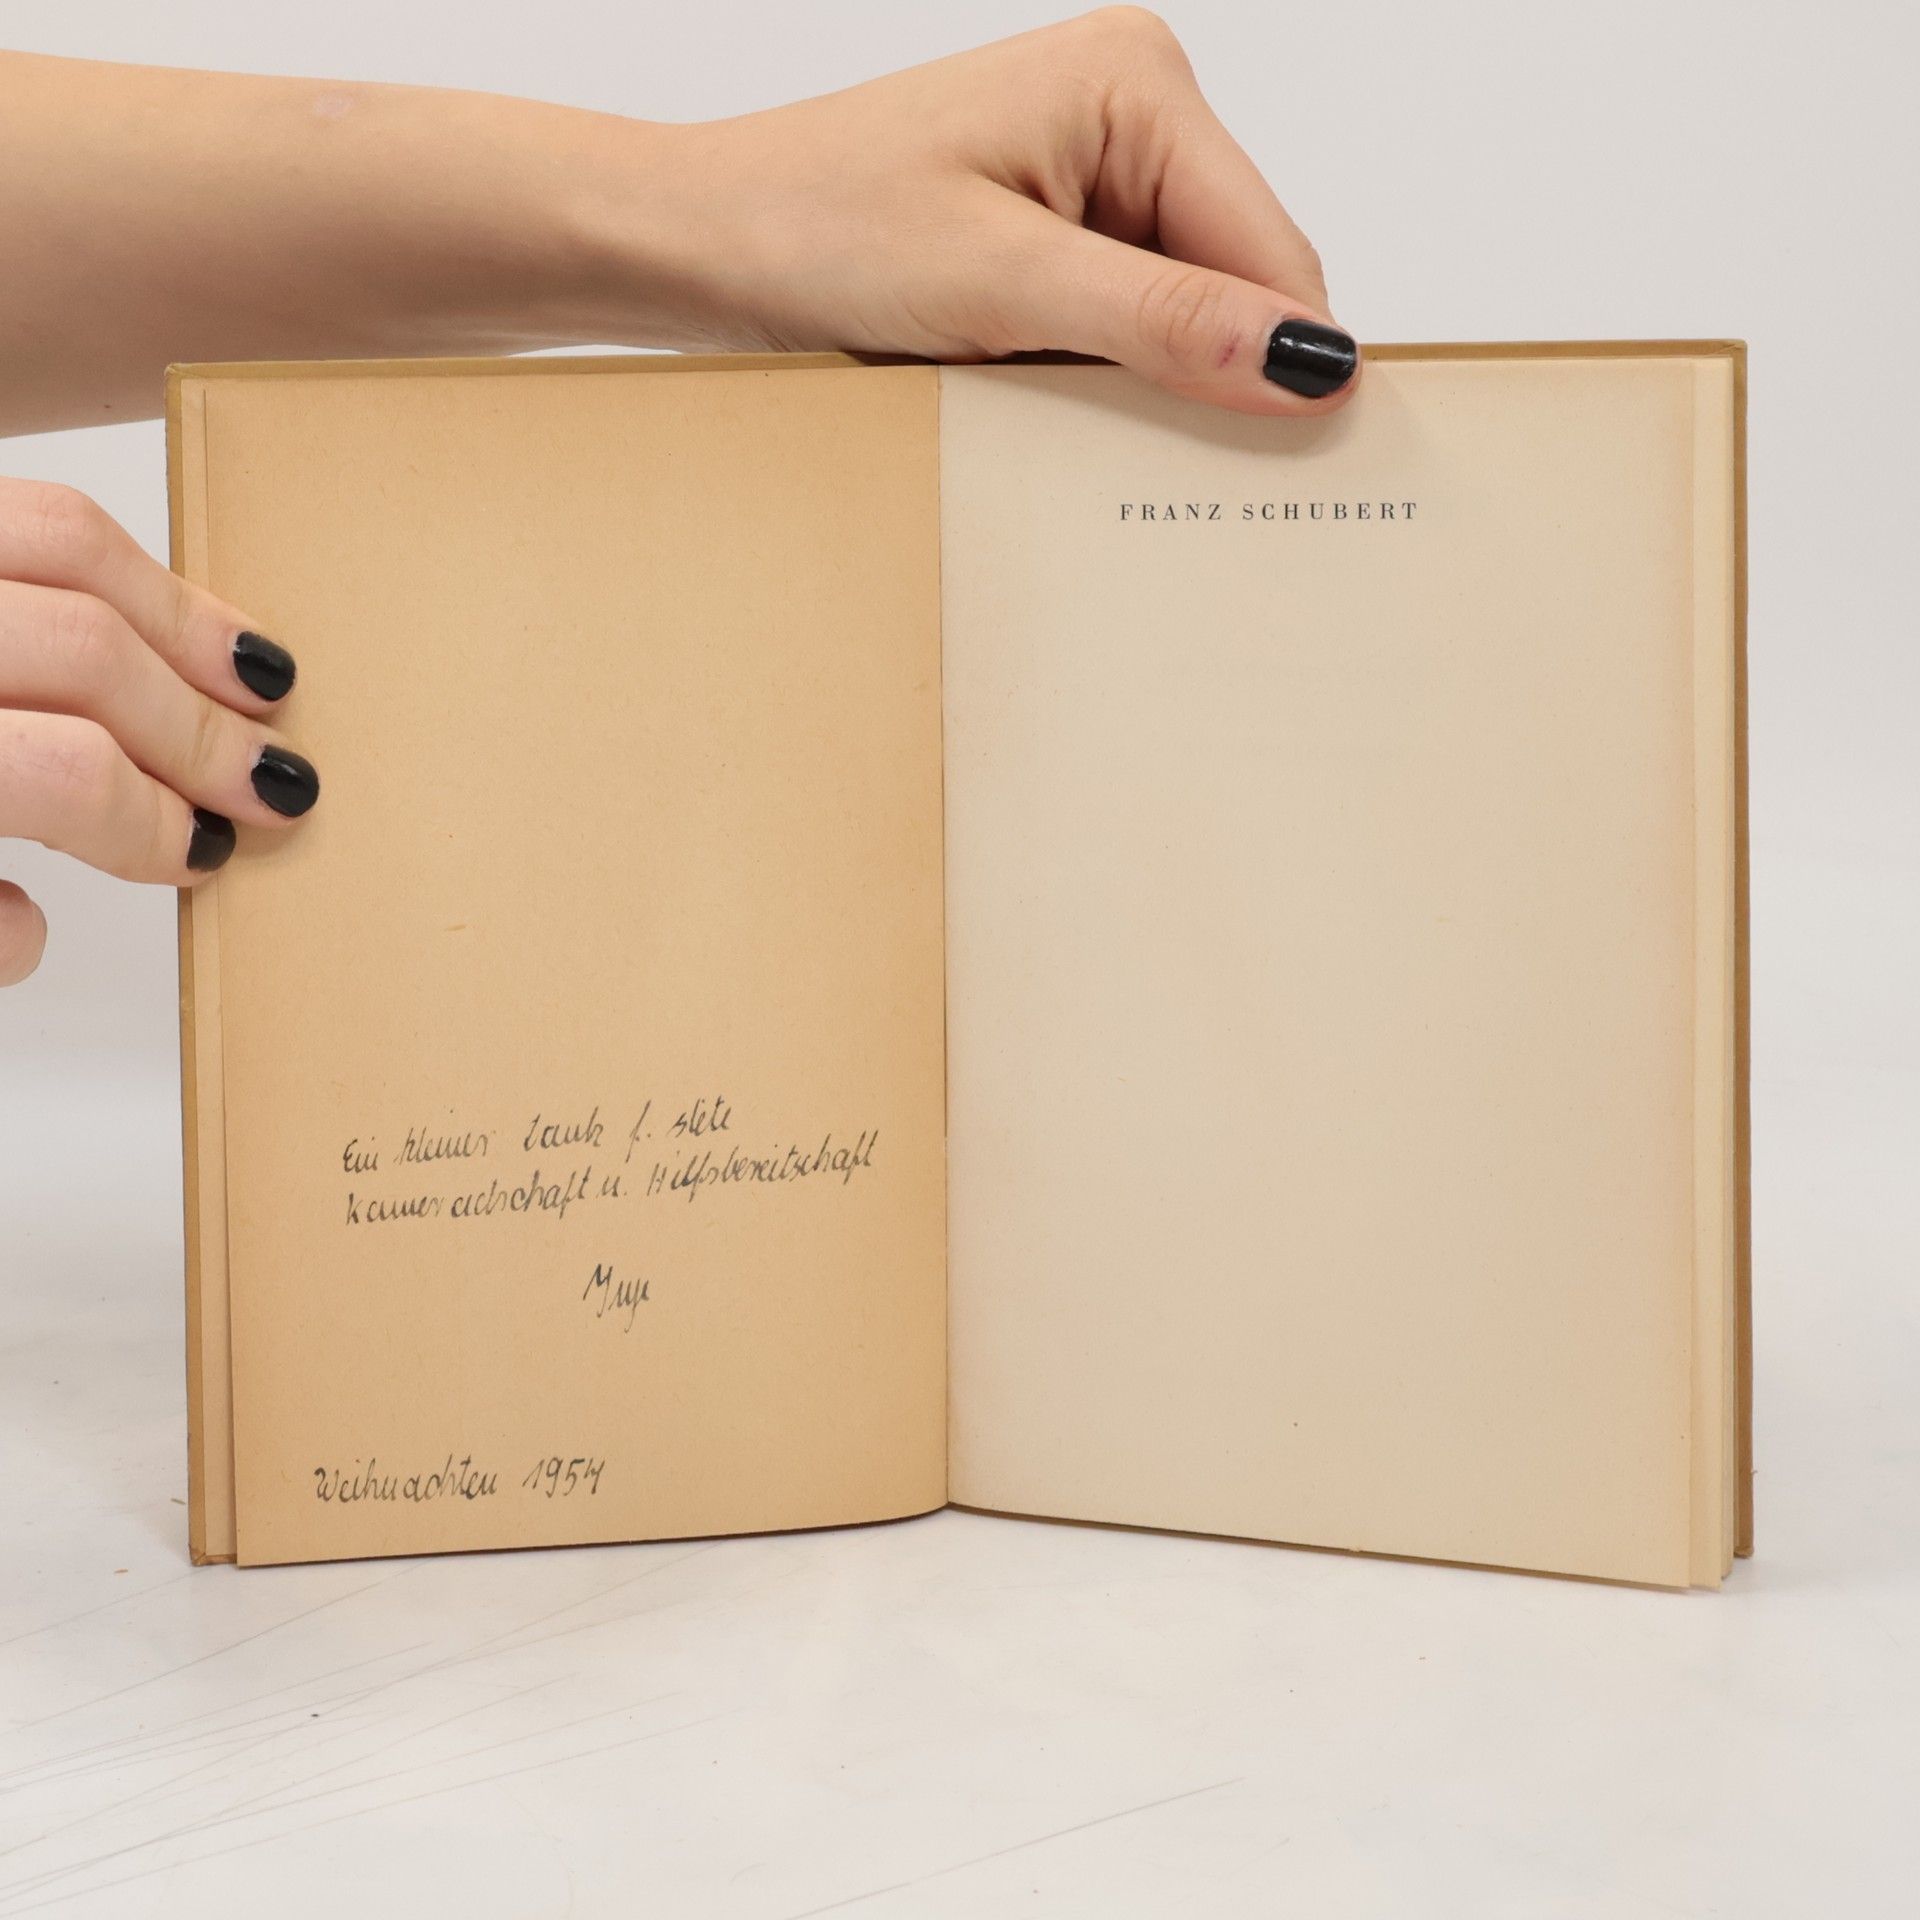 Ein kleiner Dank f. stete
Kameradschaft u. Hilfsbereitschaft
Inge
Weihnachten 1954
FRANZ SCHUBERT